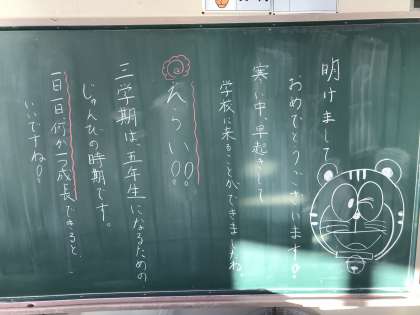 明けまして
おめでとうございます!
寒い中、早起きして
学校に来ることができましたね
えらい!!
三学期は、五年生になるための
じゅんびの時期です。
一日一日何か一つ成長できると、
いいですね!